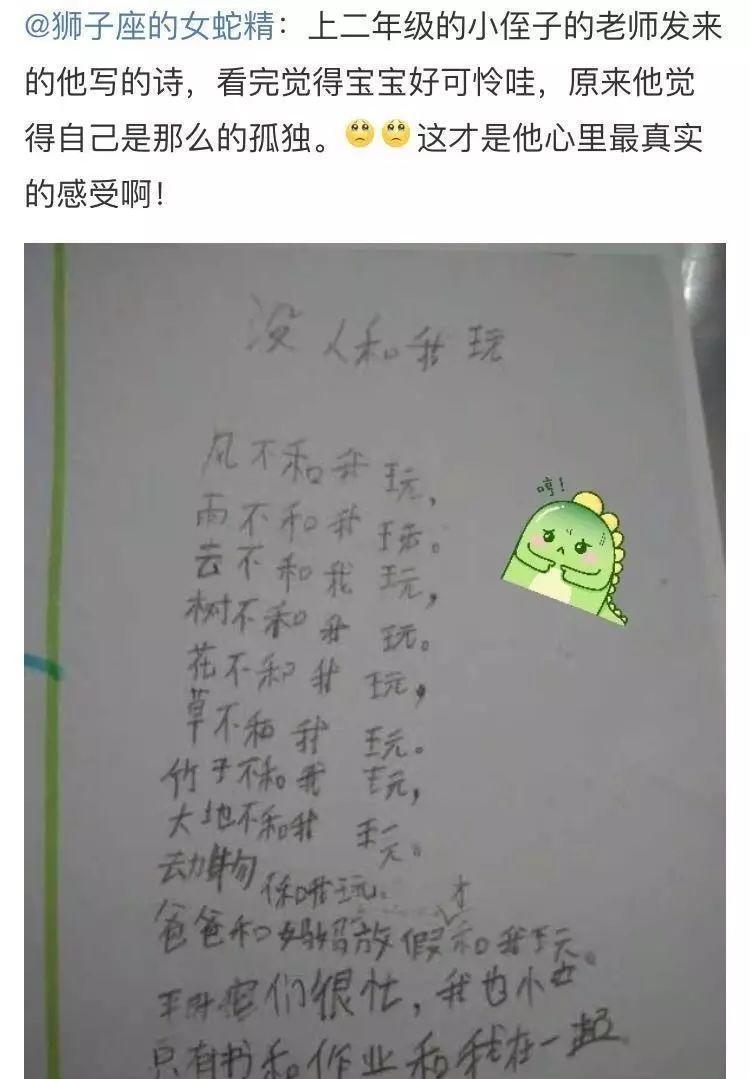 @狮子座的女蛇精：上二年级的小侄子的老师发来
的他写的诗，看完觉得宝宝好可怜哇，原来他觉
得自己是那么的孤独。🥺🥺这才是他心里最真实
的感受啊！
没人和我玩
哼！
风不和我玩，
雨不和我玩。
云不和我玩，
树不和我玩。
花不和我玩，
草不和我玩。
竹子不和我玩，
大地不和我玩。
动物 和我玩。
才
爸爸和妈妈放假和我玩。
平时 们很忙，我也
只有书和作业和我在一起